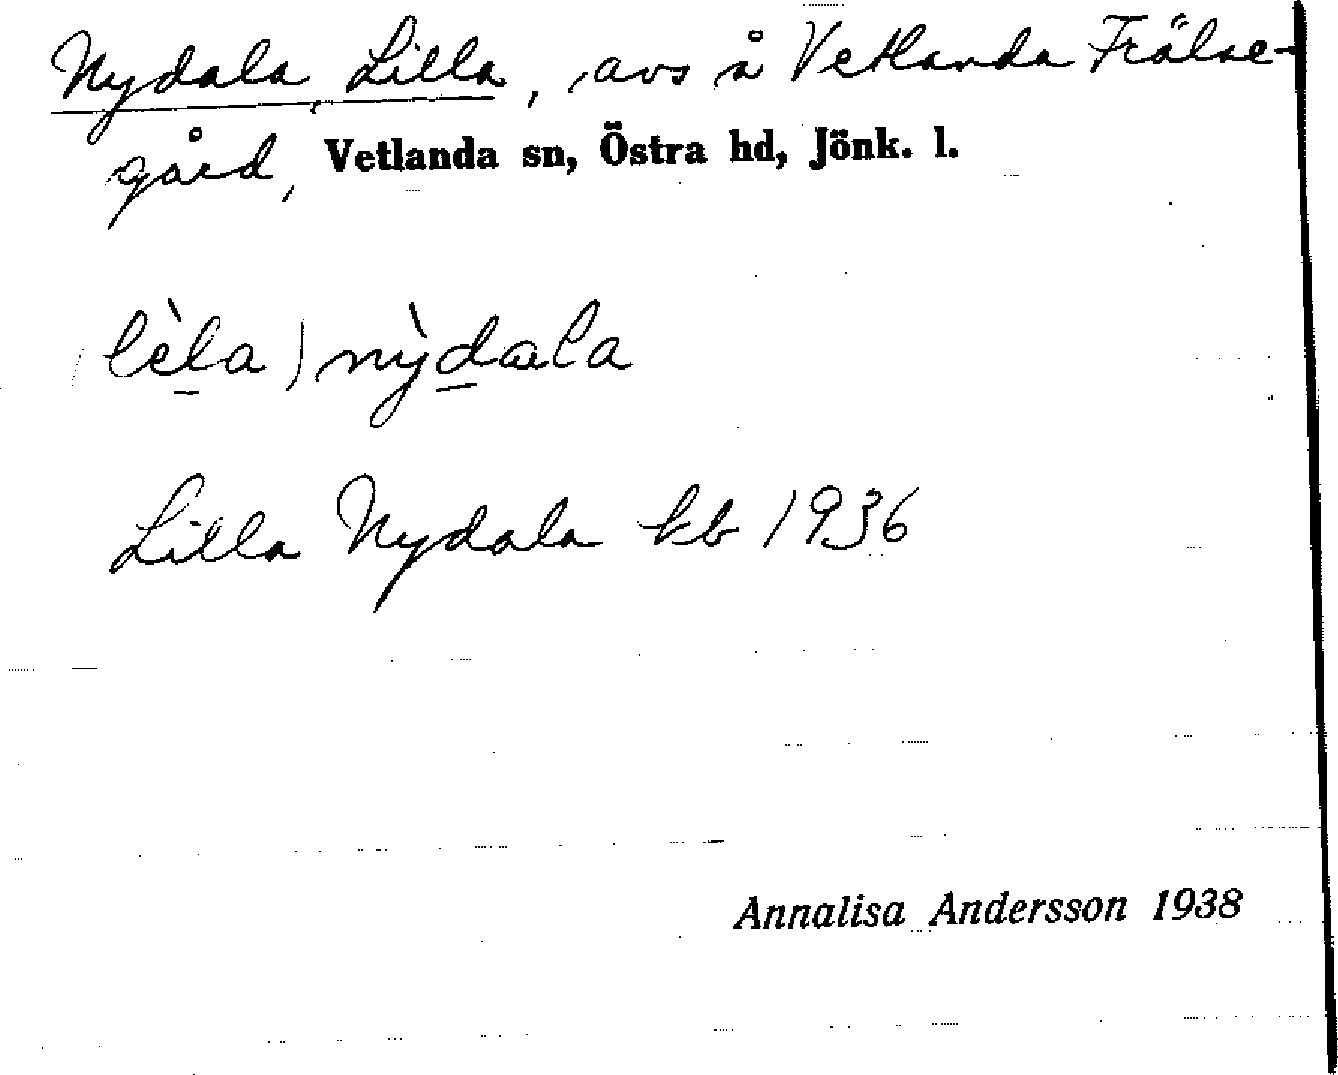 Nydala, Lilla, avs å Vetlanda Frälse-
gård, Vetlanda sn, Östra hd, Jönk. l.
(lèla) nỳdala
Lilla Nydala kb 1936
Annalisa Andersson 1938